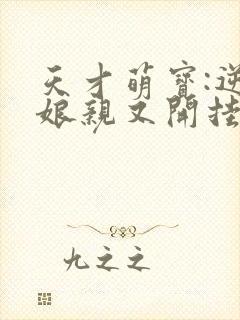 天才萌寶:逆
娘親又開挂
九之之